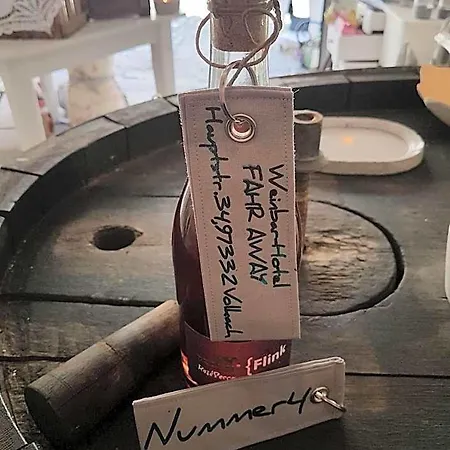 Weinbar-Hotel
FAHR AWAY
Hauptstr. 34, 97332 Volkach
{Flink
Nummer 4